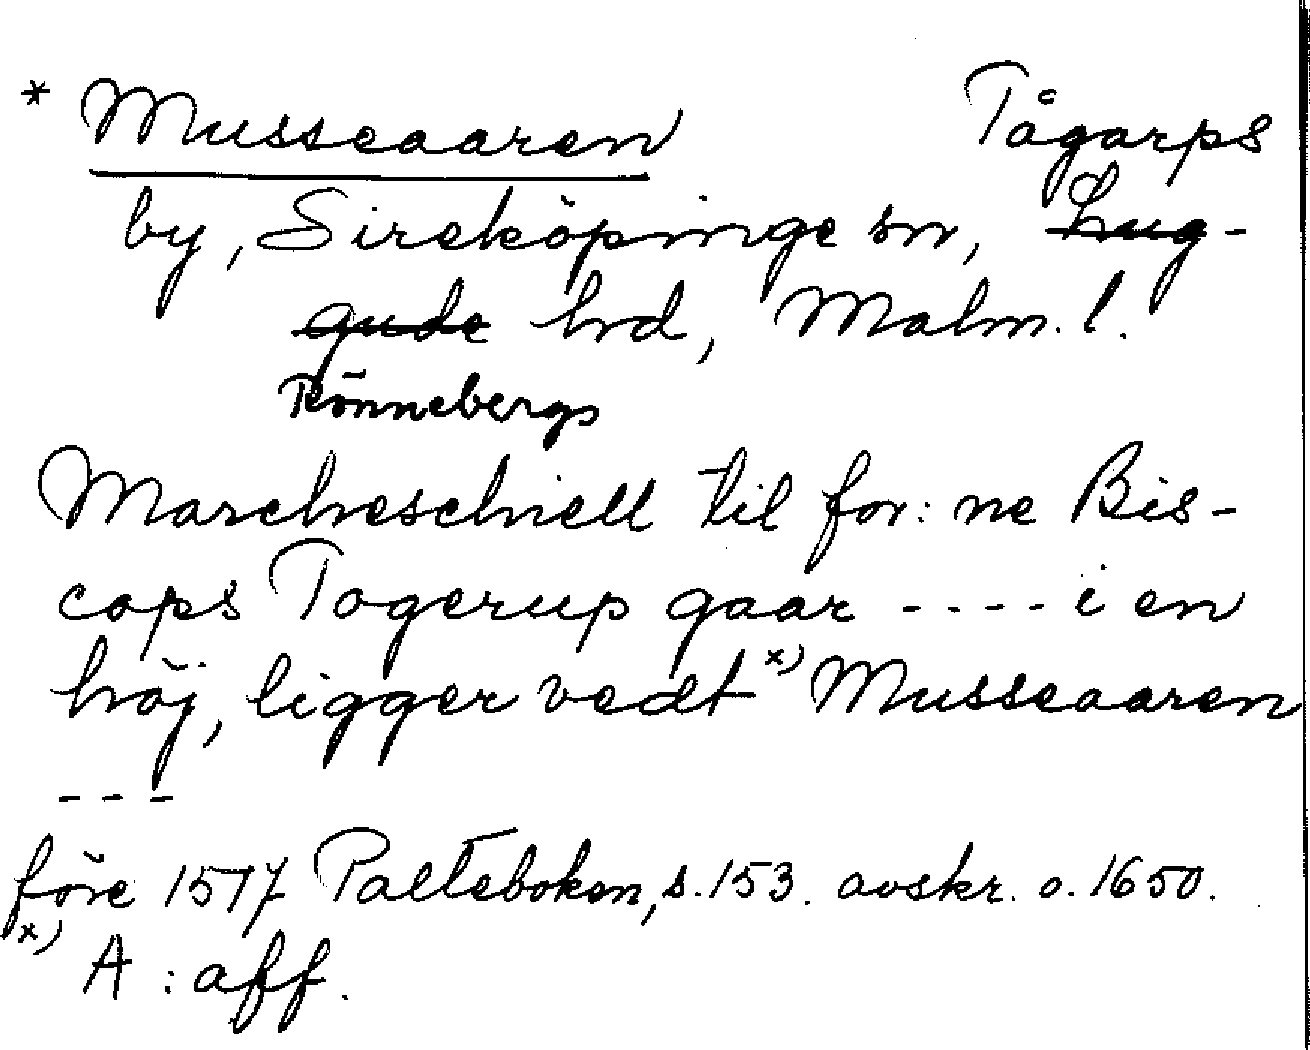 * Musseaaren Tågarps
by, Sireköpinge sn, Lug-
gude hrd, Malm. l.
Rönnebergs
Marcheschiell til for: ne Bis-
cops Togerup gaar ---- i en
höj, ligger vedt x) Musseaaren
---
före 1517 Palteboken, s. 153. avskr. o. 1650.
x) A : aff.